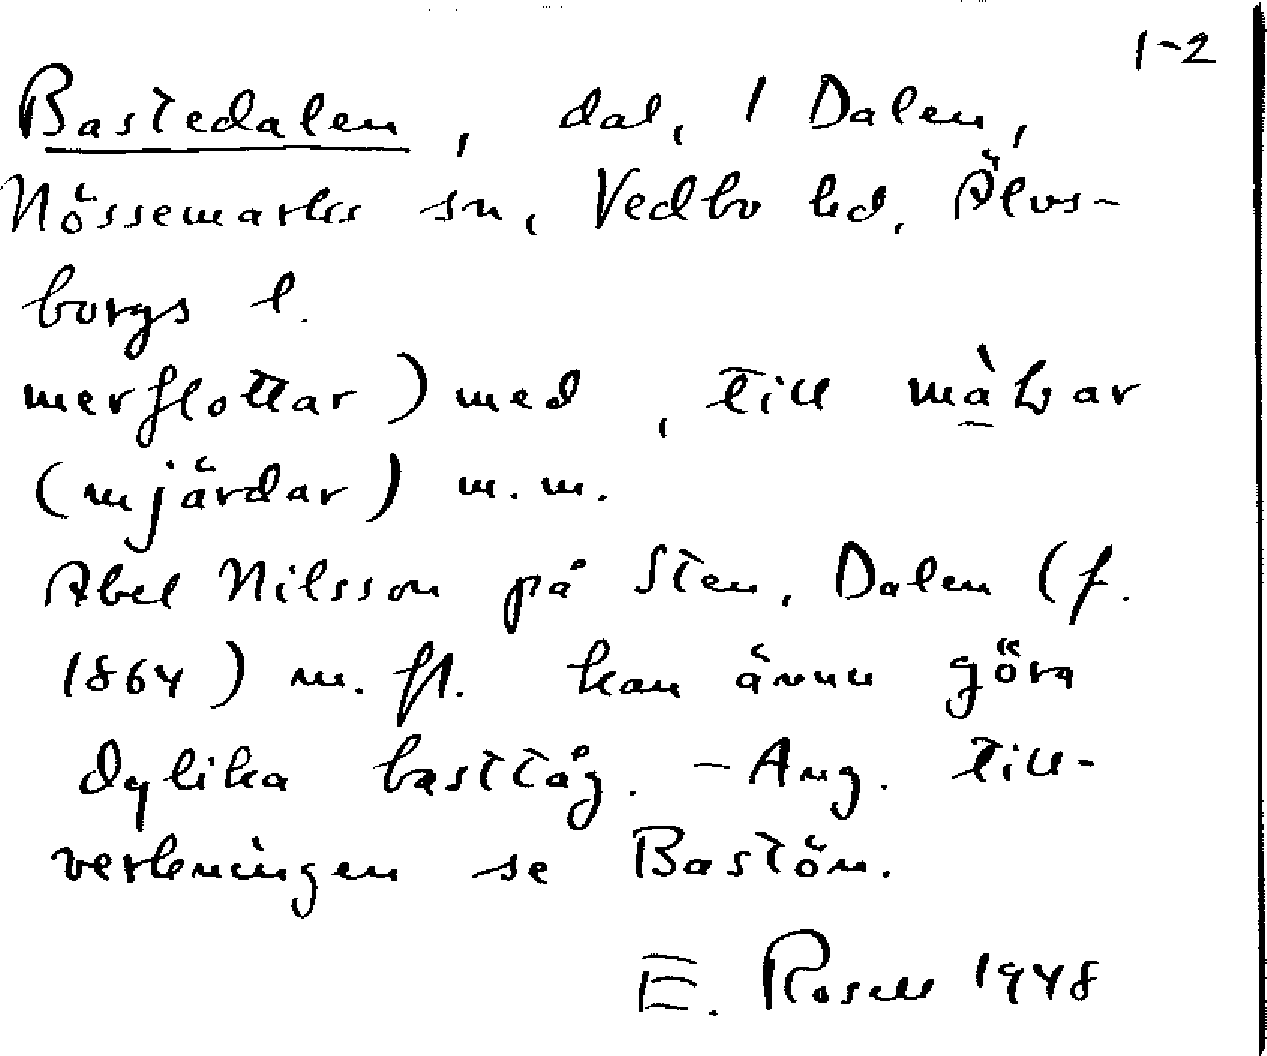 1-2
Bastedalen, dal, 1 Dalen,
Nössemarks sn, Vedbo hd, Älvs-
borgs l.
merflottar) med , till
(mjärdar) m.m.
Abel Nilsson på Sten, Dalen (f.
1864) m. fl. kan ännu göra
dylika basttåg. - Ang. till-
verkningen se Bastön.
E. Rosell 1948